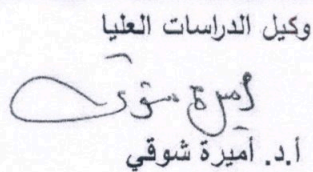 وكيل الدراسات العليا
أميرة شوقي
أ.د. أميرة شوقي